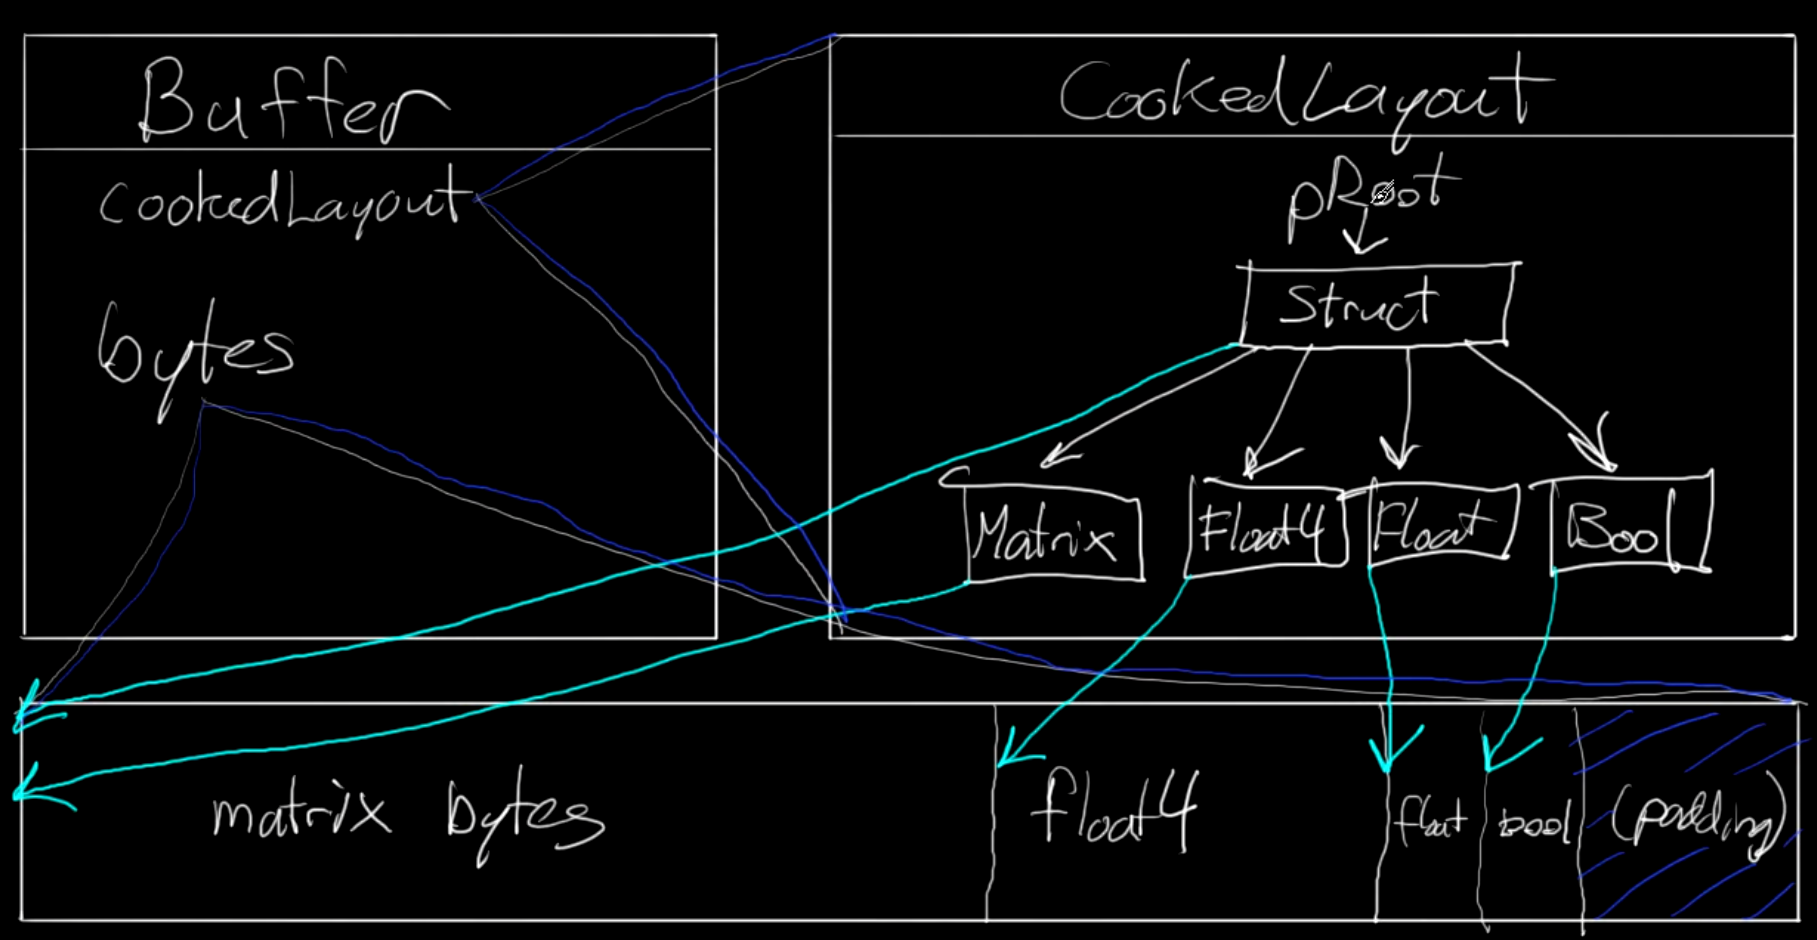 Buffer
cookedLayout
bytes
CookedLayout
pRoot
Struct
Matrix
Float4
Float
Bool
matrix bytes
float4
float
bool
(padding)